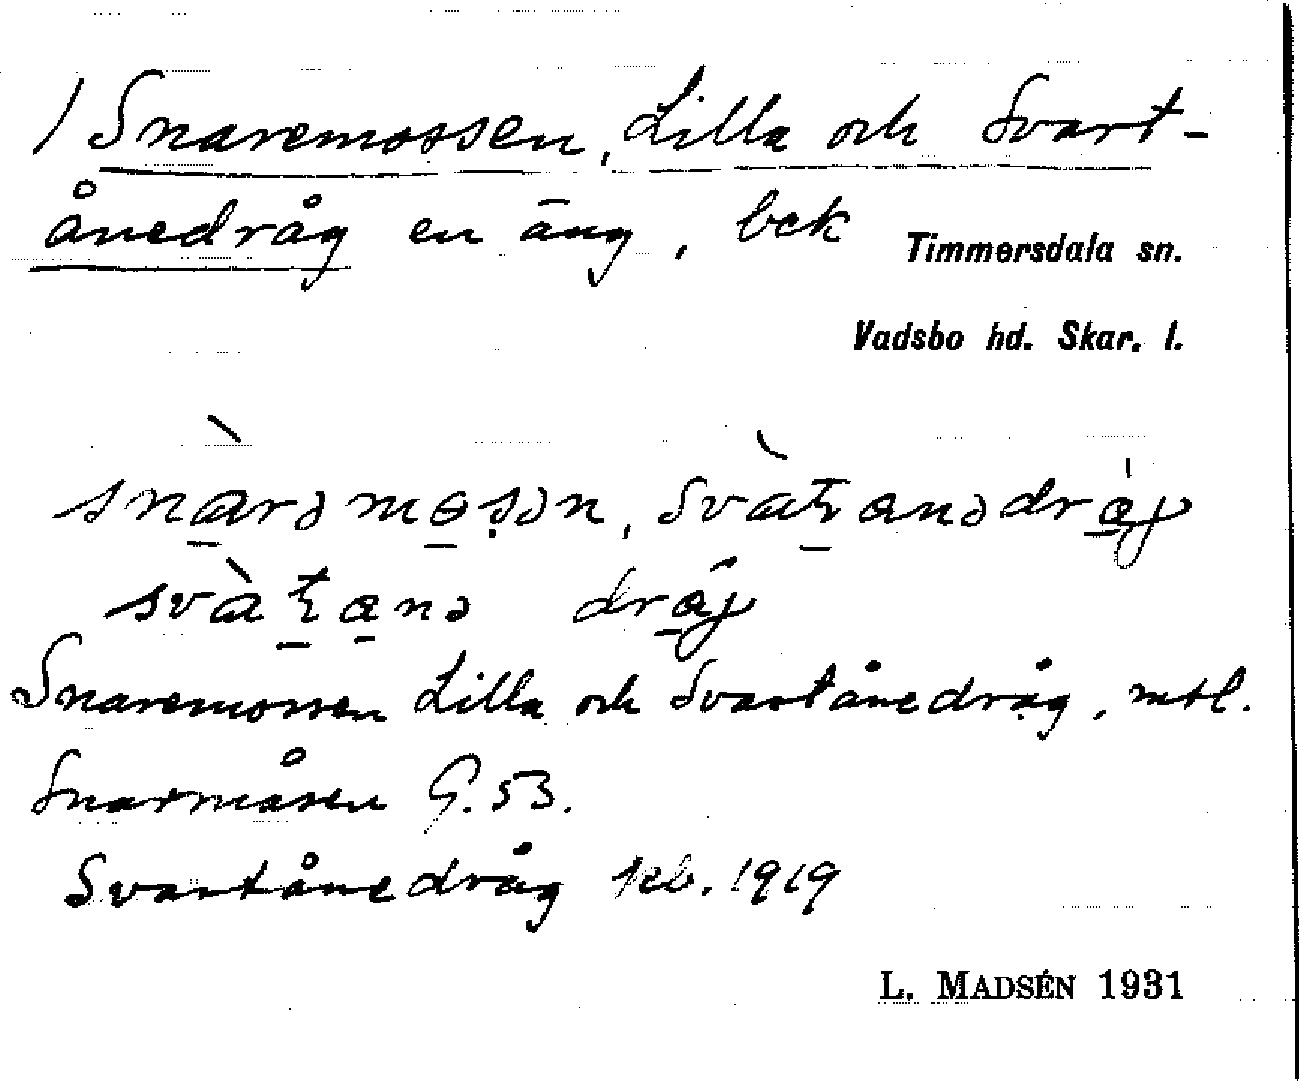 / Snaremossen, Lilla och Svart-
ånedråg en äng, bek
Timmersdala sn.
Vadsbo hd. Skar. l.
Snaremossen Lilla och Svartånedråg, mtl.
Snarmåsen G. 53.
Svartånedråg kb. 1919
L. MADSÉN 1931